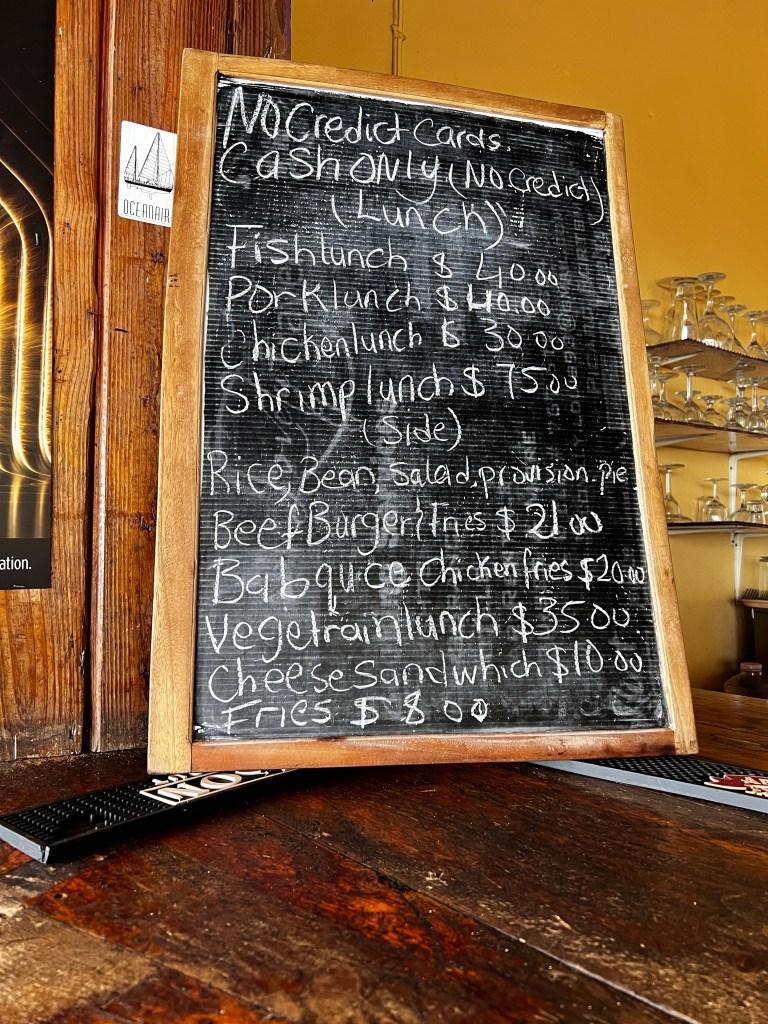 No Credict Cards.
Cash ONLY (No Credict)
(Lunch)
Fish lunch $ 40.00
Pork lunch $ 40.00
Chicken lunch $ 30.00
Shrimp lunch $ 75.00
(Side)
Rice, Bean, Salad, provision. pie
Beef Burger / Fries $ 21.00
Babquce Chicken fries $20.00
Vegetrain lunch $35.00
Cheese Sandwhich $10.00
Fries $ 8.00
OCEANAIR
ation.